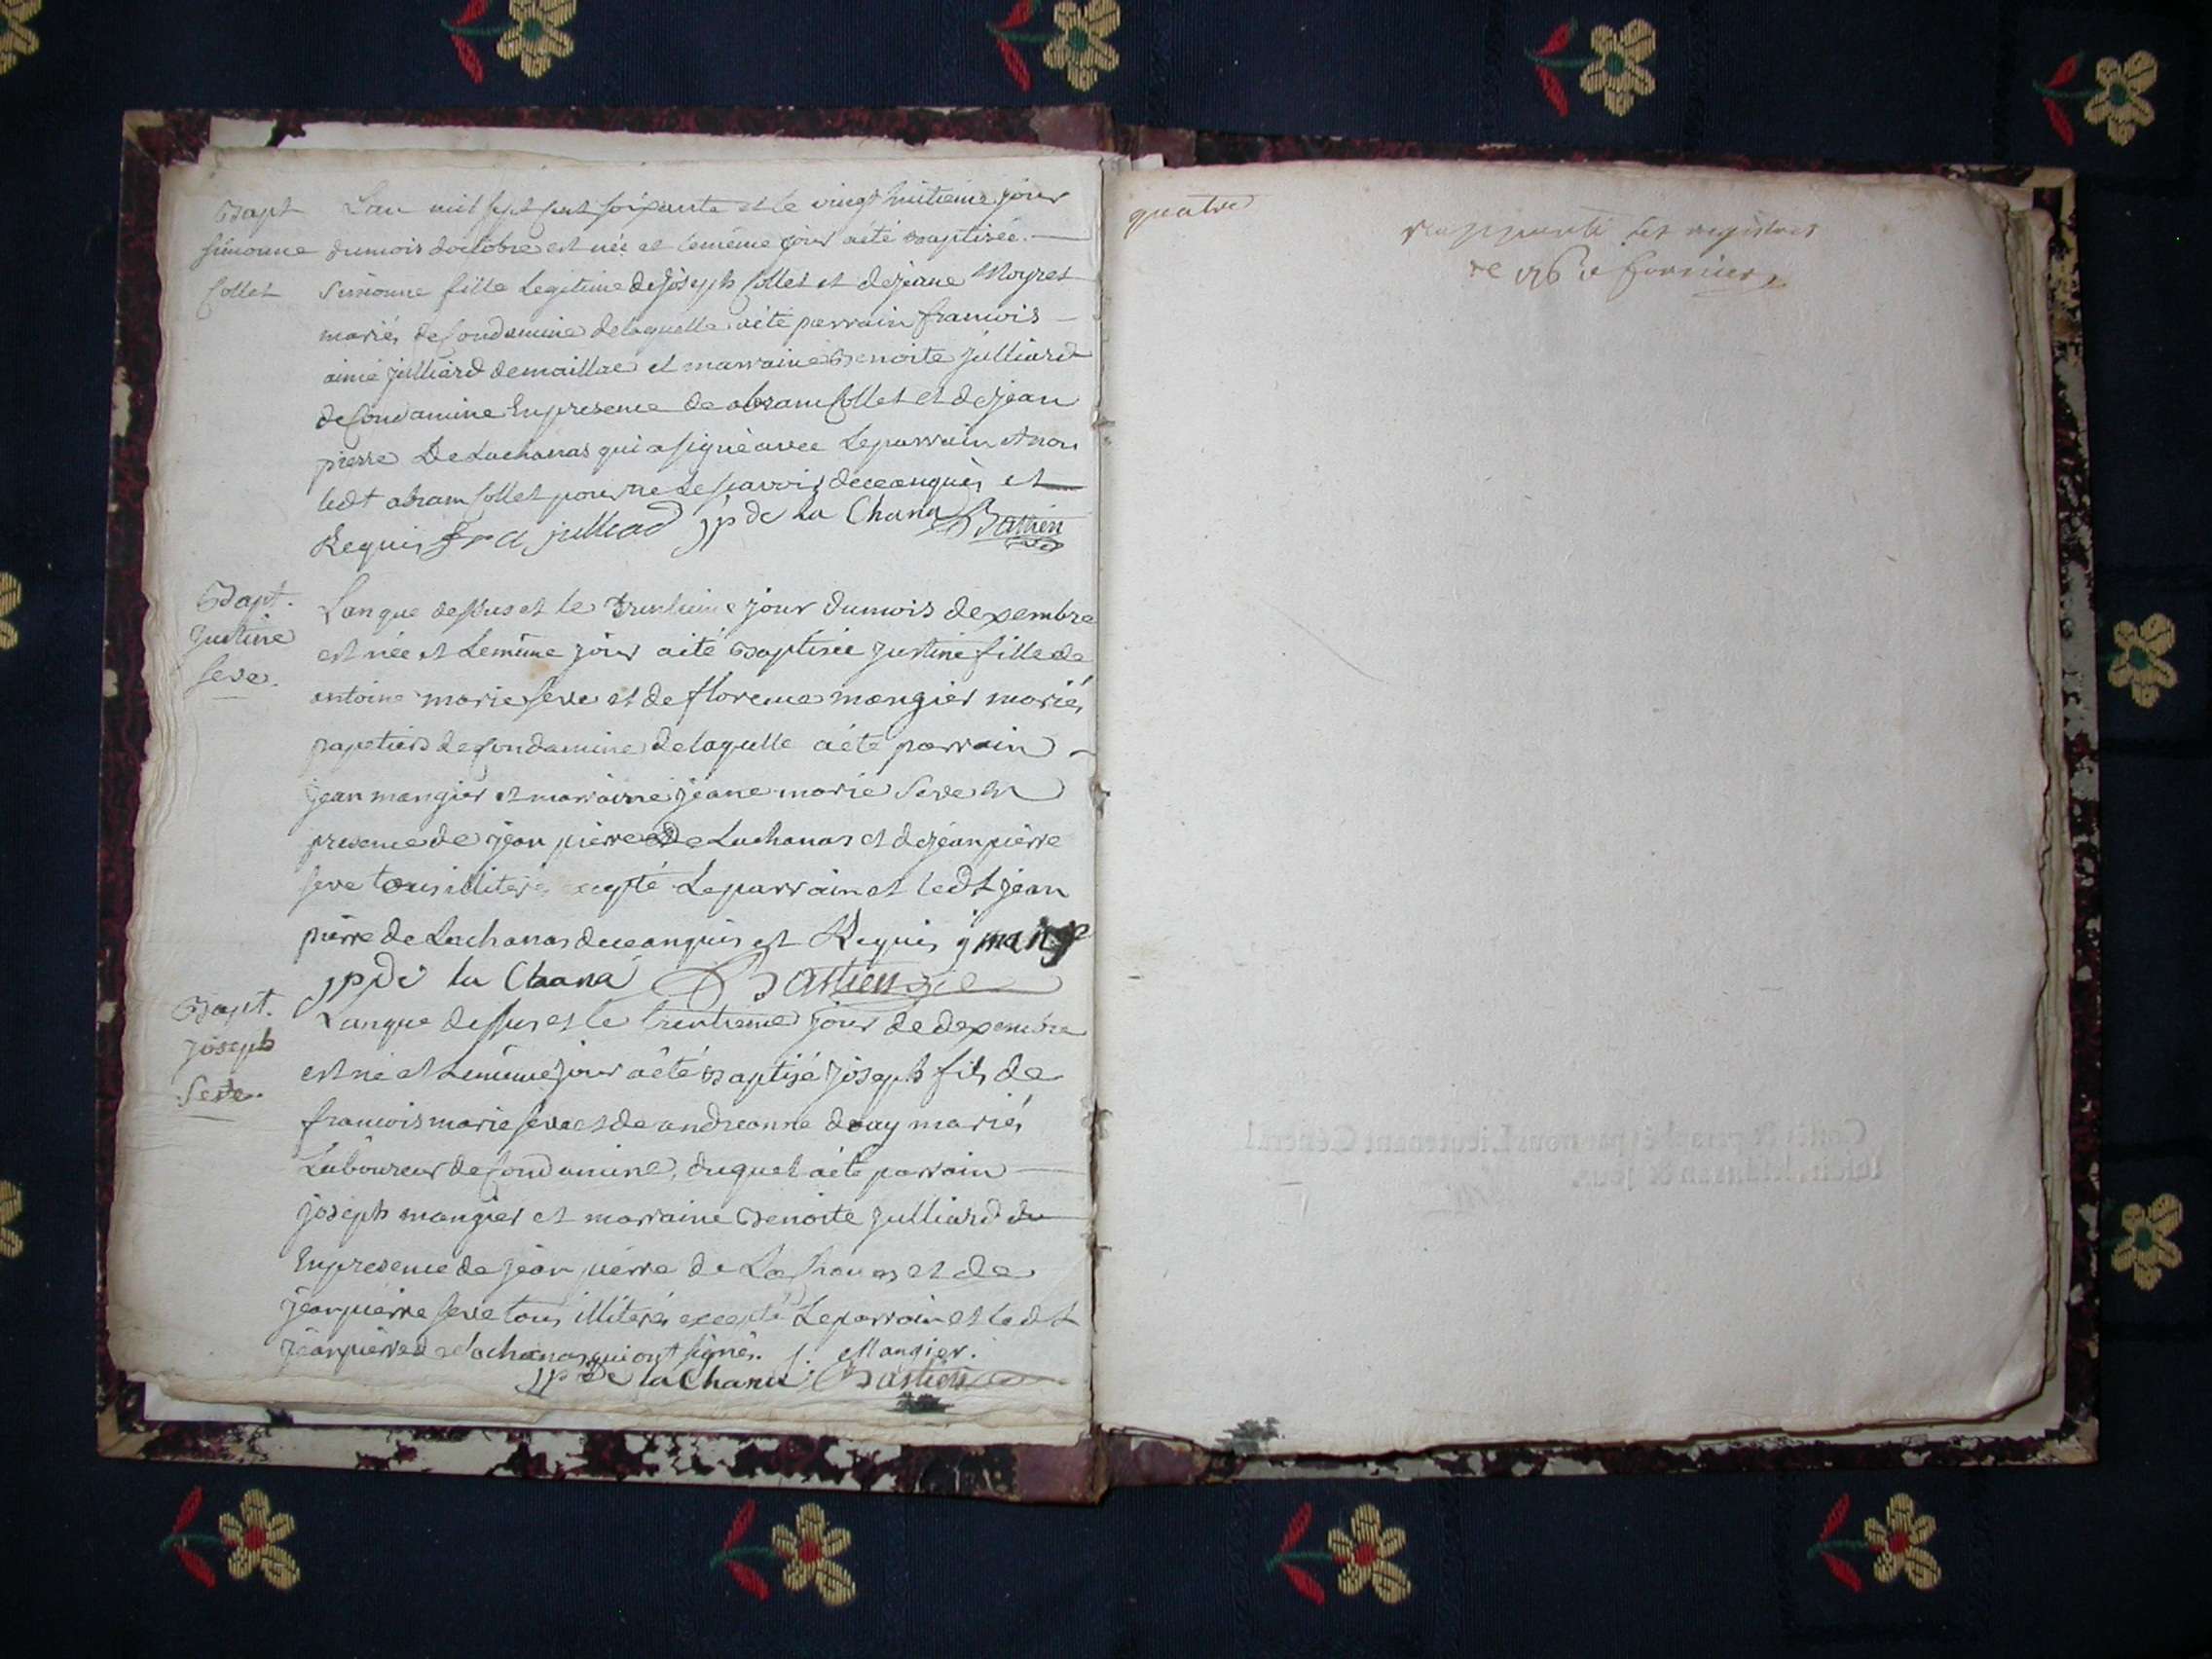 Bapt
simonne
Collet
L'an mil sept cent soixante et le vingt huitieme jour
du mois d'octobre est née et le même jour a été baptisée
Simonne fille Legitime de joseph Collet et de jeane Moyret
mariés de Condamine de laquelle a été parrain francois
aimé julliard de maillac et marraine Benoite julliard
de Condamine En presence de abram Collet et de jean
pierre De Lachanas qui a signé avec Le parrain et non
ledt abram Collet pour ne le scavoir de ce enquis et
Requis fr a julliad jp de la Chana Bastien
Bapt.
justine
seve.
L'an que dessus et le jour du mois de dexembre
est née et le même jour a été baptisée justine fille de
antoine marie seve et de florence mangier mariés
papetiers de Condamine de laquelle a été parrain
jean mangier et marraine jeane marie Seve en
presence de jean pierre de Lachanas et de jean pierre
seve tous illiteres excepté Le parrain et ledt jean
pierre de Lachanas de ce enquis et Requis j mangie
jp de la Chana Bastien
Bapt.
joseph
Seve.
L'an que dessus et le trentieme jour de dexembre
est né et le même jour a été baptisé joseph fils de
francois marie seve et de andreanne mariés
Laboureur de Condamine, duquel a été parrain
joseph mangier et marraine Benoite julliard
En presence de jean pierre de La Chanas et de
jean pierre seve tous illiterés excepté Le parrain et ledt
jean pierre de lachanas qui ont signés. j. Mangier.
jp De la Chana Bastien
quatre
les registres
de 176
Cottés & paraphés par nous Lieutenant Général